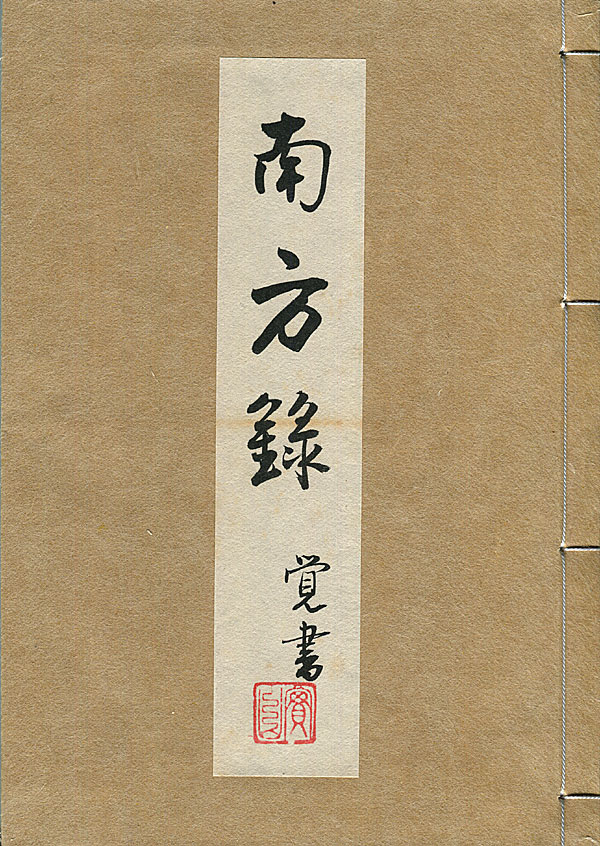 南方錄
覚書